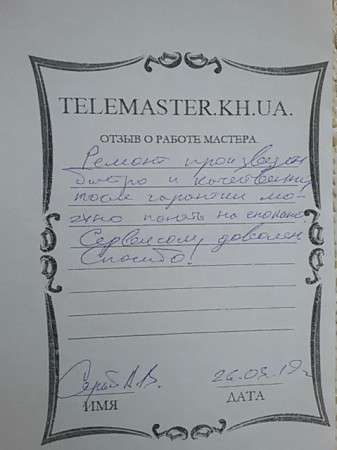 TELEMASTER.KH.UA.
ОТЗЫВ О РАБОТЕ МАСТЕРА.
Ремонт произведен
быстро и качественно,
после гарантии мо-
жно на
Сервисом доволен
Спасибо!
26.09.19г
ИМЯ
ДАТА